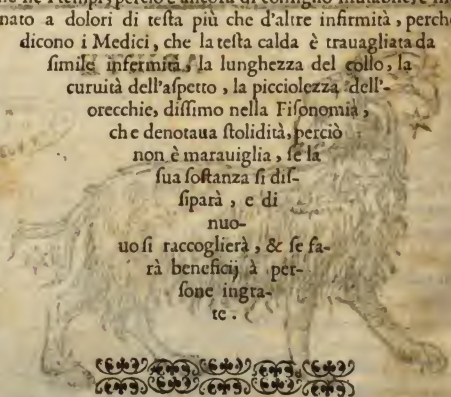 perciò è ancora di
nato a dolori di teſta più che d'altre infirmità, perche
dicono i Medici, che la teſta calda è trauagliata da
ſimile infermità, la lunghezza del collo, la
curuità dell'aſpetto, la picciolezza dell'-
orecchie, diſſimo nella Fiſonomia,
che denotaua ſtolidità, perciò
non è marauiglia, ſe la
ſua ſoſtanza ſi diſ-
ſiparà, e di
nuo-
uo ſi raccoglierà, & ſe fa-
rà beneficij à per-
ſone ingra-
te.